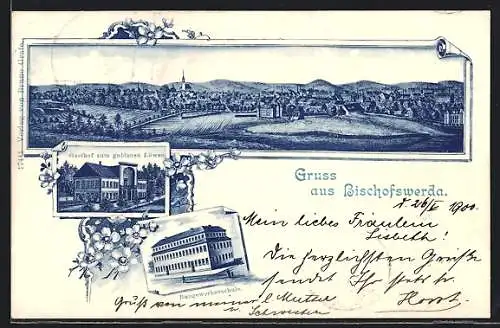 Verlag von Bruno Grafe
Gasthof zum goldenen Löwen
Gruss
aus Bischofswerda.
d. 26/X 1900.
Mein liebes Fräulein
Lisbeth!
Die herzlichsten Grüße
sendet Ihr
Horst.
Baugewerkenschule.
Gruß von meiner l. Mutter
u. Schwester